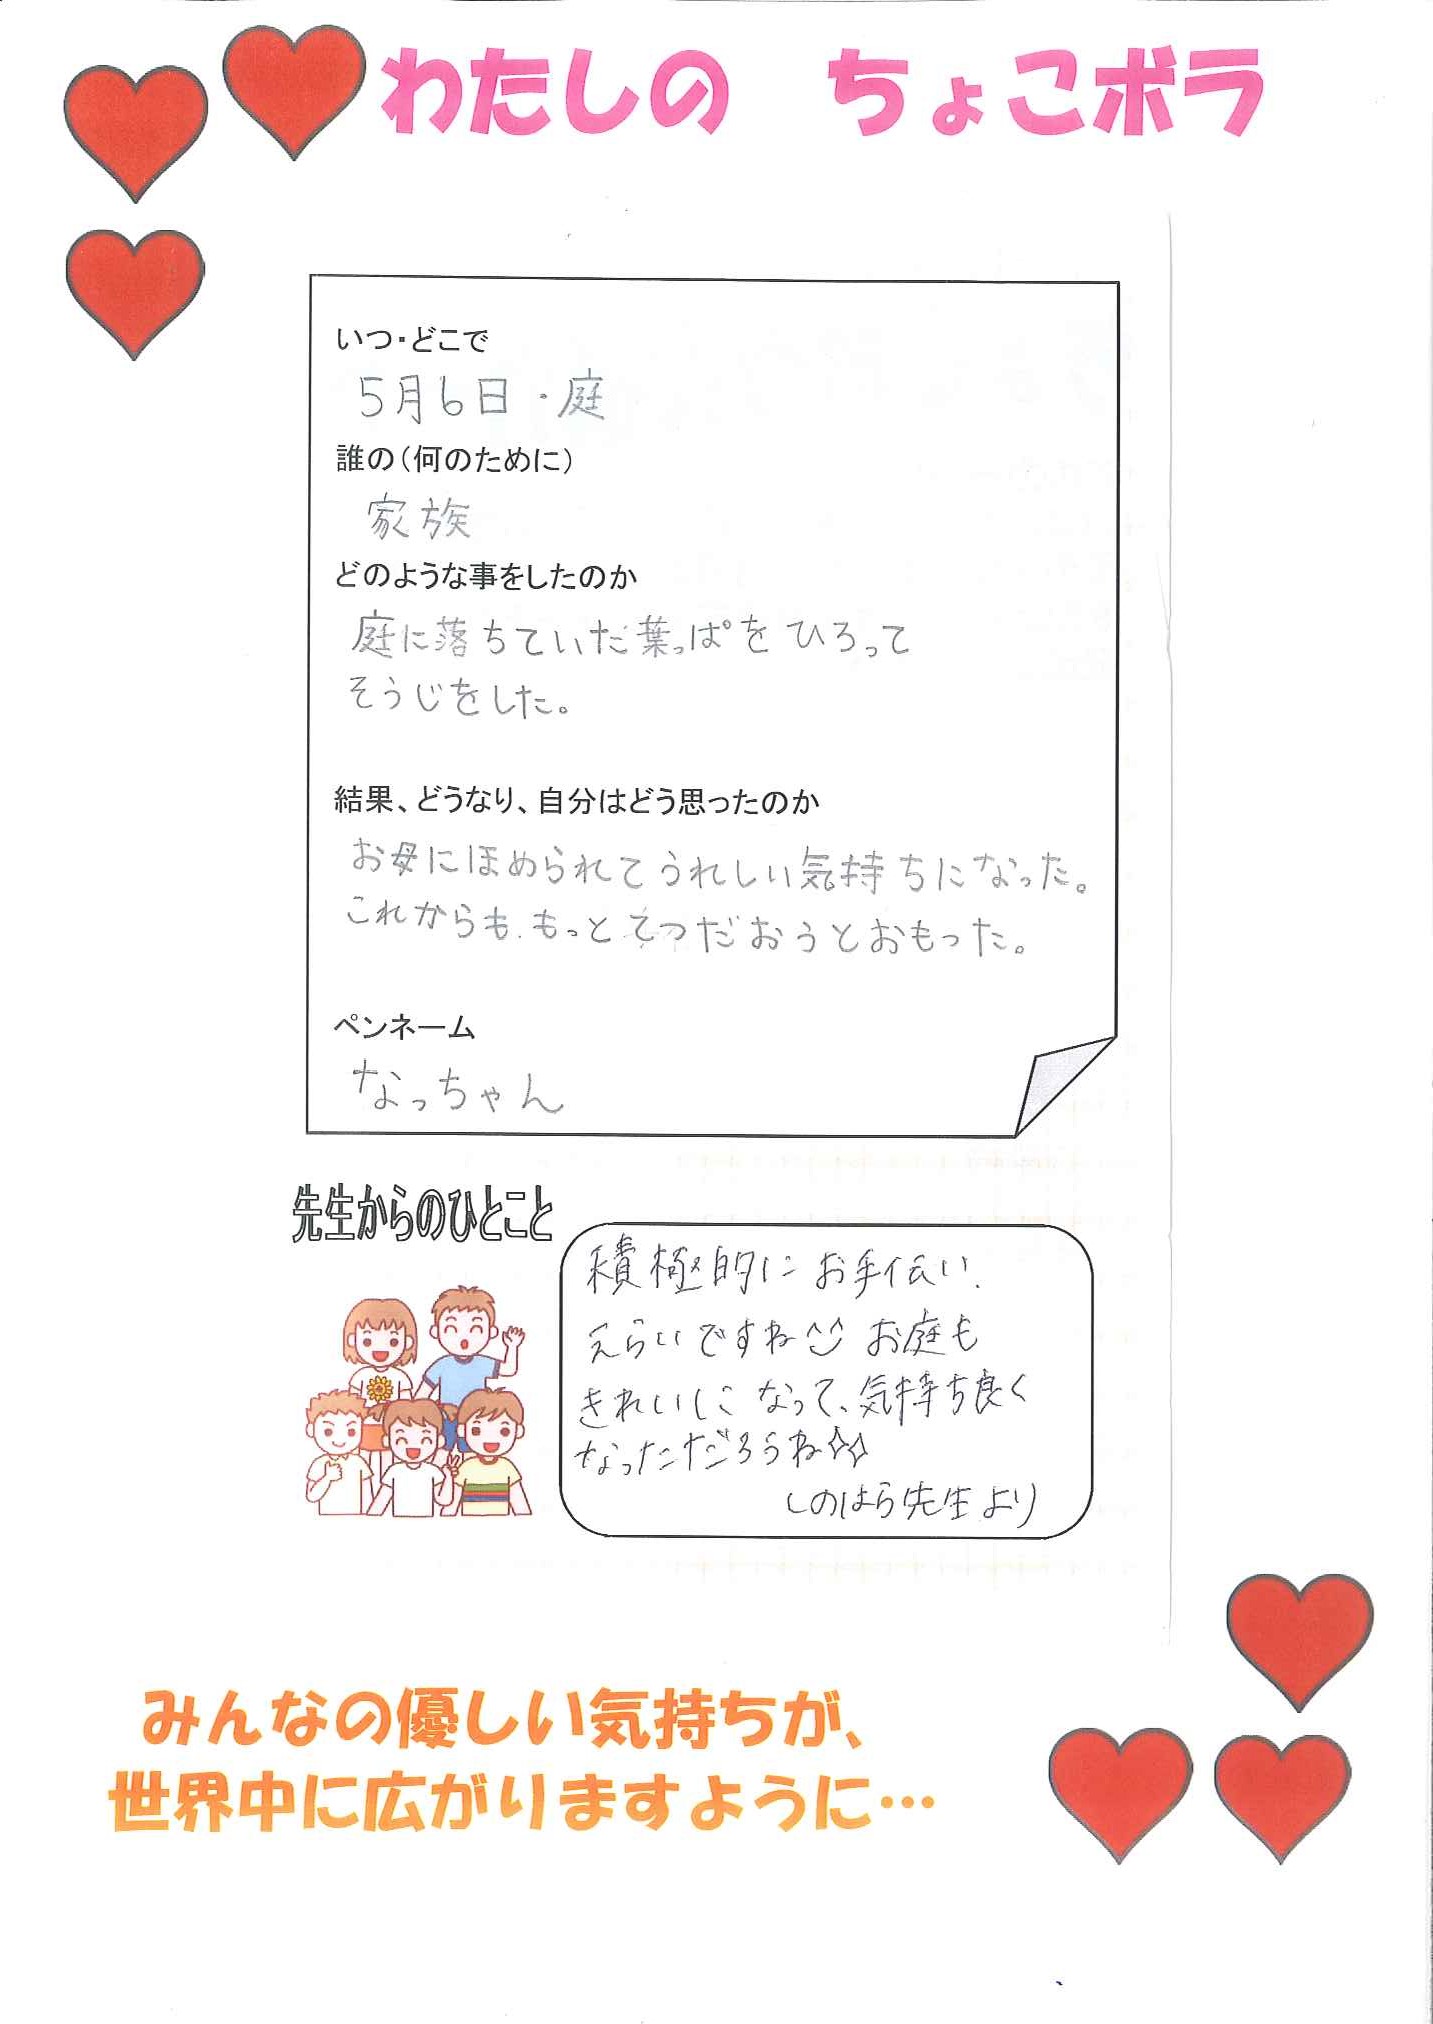 わたしの　ちょこボラ
いつ・どこで
5月6日・庭
誰の(何のために)
家族
どのような事をしたのか
庭に落ちていた葉っぱをひろって
そうじをした。
結果、どうなり、自分はどう思ったのか
お母にほめられてうれしい気持ちになった。
これからも、もっとてつだおうとおもった。
ペンネーム
なっちゃん
先生からのひとこと
積極的にお手伝い、
えらいですね^^ お庭も
きれいになって、気持ち良く
なっただろうね☆☆
しのはら先生より
みんなの優しい気持ちが、
世界中に広がりますように…